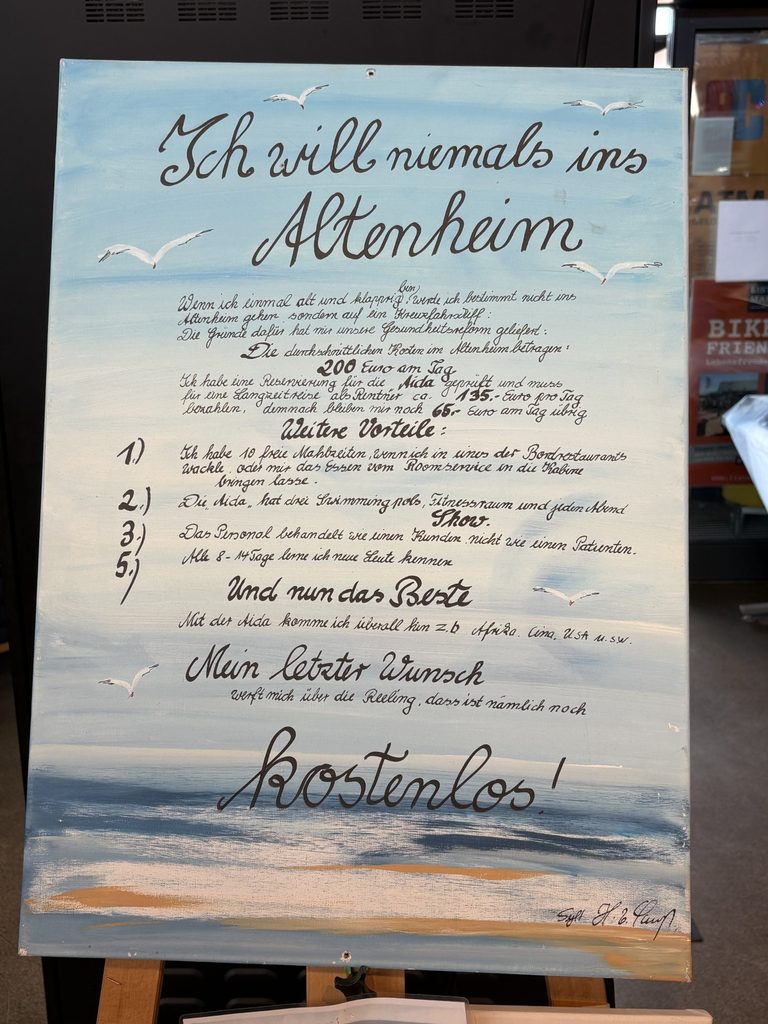 Ich will niemals ins
Altenheim
Wenn ich einmal alt und klapprig bin, werde ich bestimmt nicht ins
Altenheim gehen sondern auf ein Kreuzfahrschiff:
Die Gründe dafür hat mir unsere Gesundheitsreform geliefert:
Die durchschnittlichen Kosten im Altenheim betragen:
200 Euro am Tag
Ich habe eine Reservierung für die „Aida geprüft und muss
für eine Langzeitreise als Rentner ca. 135.- Euro pro Tag
bezahlen, demnach bleiben mir noch 65.- Euro am Tag übrig
Weitere Vorteile:
1.) Ich habe 10 freie Mahlzeiten, wenn ich in eines der Bordrestaurants
wackle, oder mir das Essen vom Roomservice in die Kabine
bringen lasse.
2.) Die „Aida„ hat drei Swimming pols, Fitnessraum und jeden Abend
Show.
3.) Das Personal behandelt wie einen Kunden, nicht wie einen Patienten.
5.) Alle 8-14 Tage lerne ich neue Leute kennen
Und nun das Beste
Mit der Aida komme ich überall hin z.b Afrika. Cina, USA u.s.w.
Mein letzter Wunsch
werft mich über die Reeling, dass ist nämlich noch
kostenlos!
Sylt
ATM
BIKE
FRIEN